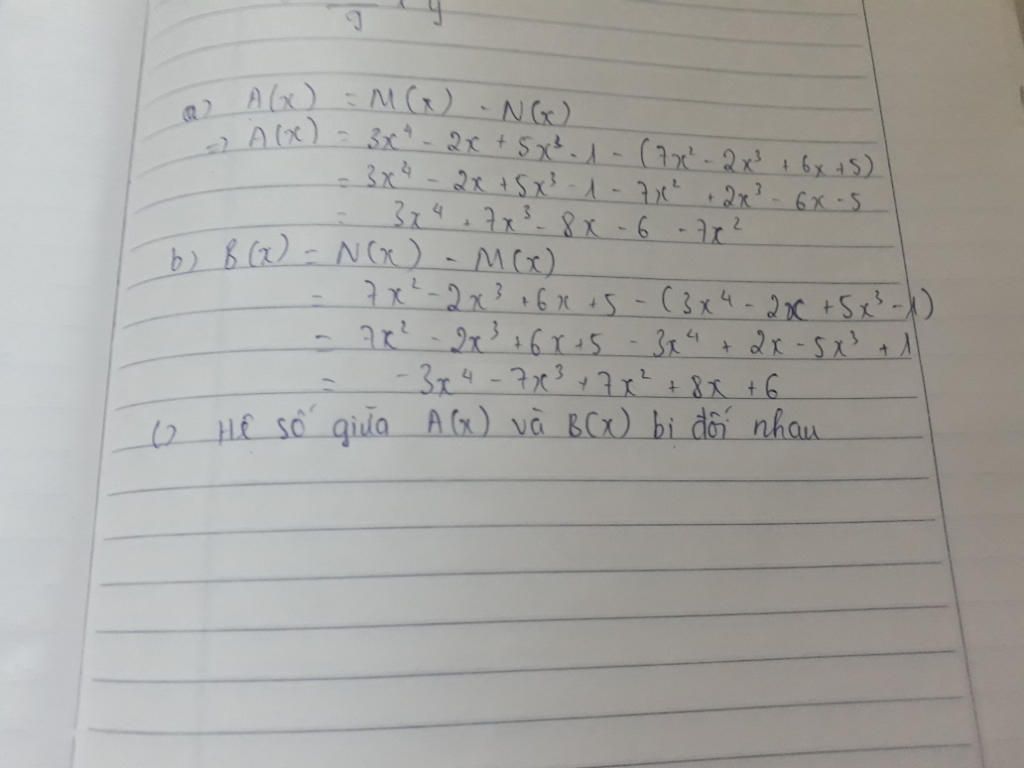 9 y
a) A(x) = M(x) - N(x)
=> A(x) = 3x⁴ - 2x + 5x³ - 1 - (7x² - 2x³ + 6x + 5)
= 3x⁴ - 2x + 5x³ - 1 - 7x² + 2x³ - 6x - 5
= 3x⁴ + 7x³ - 8x - 6 - 7x²
b) B(x) = N(x) - M(x)
= 7x² - 2x³ + 6x + 5 - (3x⁴ - 2x + 5x³ - 1)
= 7x² - 2x³ + 6x + 5 - 3x⁴ + 2x - 5x³ + 1
= -3x⁴ - 7x³ + 7x² + 8x + 6
c) Hệ số giữa A(x) và B(x) bị đối nhau